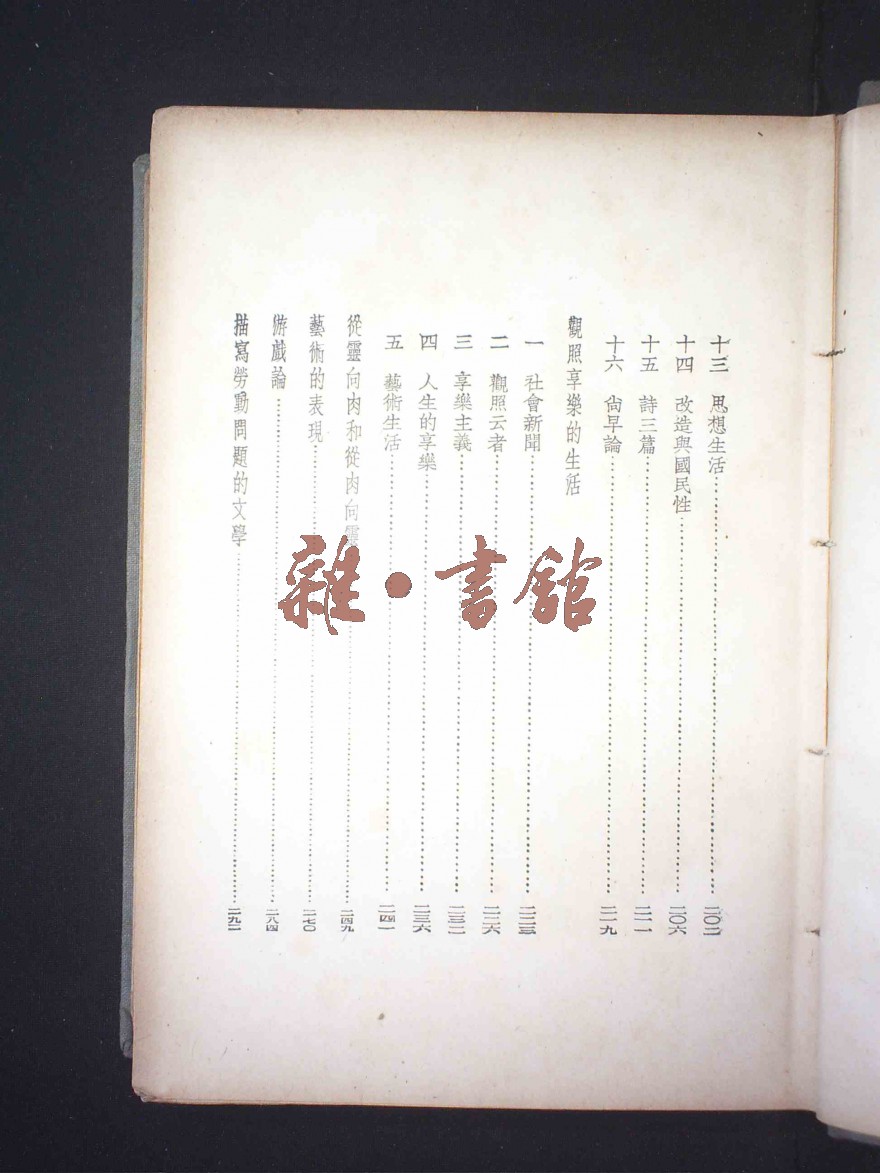 十三　思想生活……二〇二
十四　改造與國民性……二〇六
十五　詩三篇……二一一
十六　尙早論……二一九
觀照享樂的生活
一　社會新聞……二二三
二　觀照云者……二二六
三　享樂主義……二三二
四　人生的享樂……二三六
五　藝術生活……二四一
從靈向肉和從肉向靈……二四九
藝術的表現……二七〇
游戲論……二八四
描寫勞動問題的文學……二九二
雜·書館